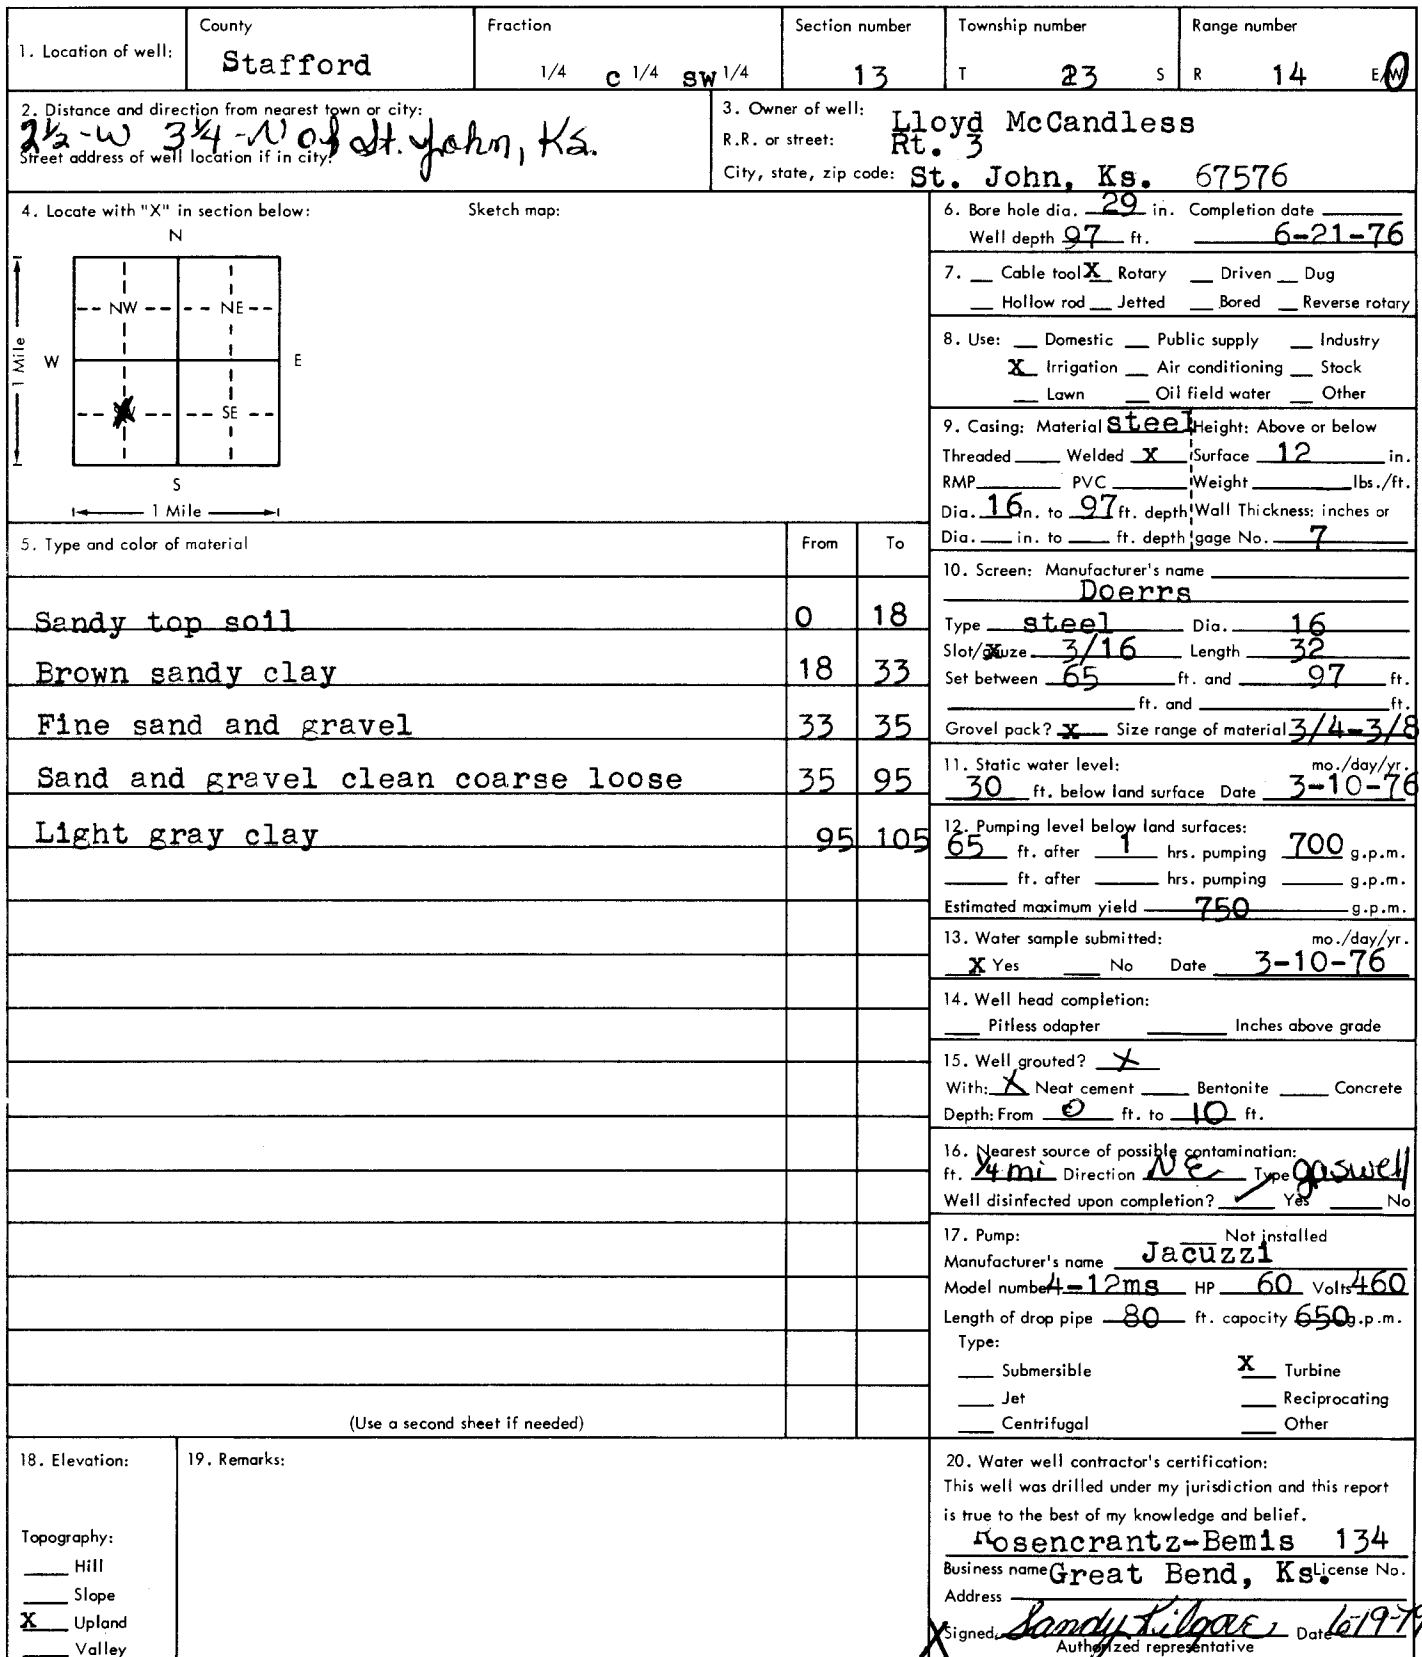 1. Location of well: County Stafford Fraction 1/4 C 1/4 SW 1/4 Section number 13 Township number T 23 S Range number R 14 E/W
2. Distance and direction from nearest town or city:
2½-W 3¼-N of St. John, Ks.
Street address of well location if in city:
3. Owner of well: Lloyd McCandless
R.R. or street: Rt. 3
City, state, zip code: St. John, Ks. 67576
4. Locate with "X" in section below: Sketch map:
N
NW NE
W E
1 Mile
SW SE
S
1 Mile
5. Type and color of material From To
Sandy top soil 0 18
Brown sandy clay 18 33
Fine sand and gravel 33 35
Sand and gravel clean coarse loose 35 95
Light gray clay 95 105
(Use a second sheet if needed)
6. Bore hole dia. 29 in. Completion date
Well depth 97 ft. 6-21-76
7. Cable tool X Rotary Driven Dug
Hollow rod Jetted Bored Reverse rotary
8. Use: Domestic Public supply Industry
X Irrigation Air conditioning Stock
Lawn Oil field water Other
9. Casing: Material steel Height: Above or below
Threaded Welded X Surface 12 in.
RMP PVC Weight lbs./ft.
Dia. 16 in. to 97 ft. depth Wall Thickness: inches or
Dia. in. to ft. depth gage No. 7
10. Screen: Manufacturer's name
Doerrs
Type steel Dia. 16
Slot/gauze 3/16 Length 32
Set between 65 ft. and 97 ft.
ft. and ft.
Gravel pack? X Size range of material 3/4-3/8
11. Static water level: mo./day/yr.
30 ft. below land surface Date 3-10-76
12. Pumping level below land surfaces:
65 ft. after 1 hrs. pumping 700 g.p.m.
ft. after hrs. pumping g.p.m.
Estimated maximum yield 750 g.p.m.
13. Water sample submitted: mo./day/yr.
X Yes No Date 3-10-76
14. Well head completion:
Pitless adapter Inches above grade
15. Well grouted? X
With: X Neat cement Bentonite Concrete
Depth: From 0 ft. to 10 ft.
16. Nearest source of possible contamination:
ft. ¼ mi Direction NE Type gaswell
Well disinfected upon completion? ✓ Yes No
17. Pump: Not installed
Manufacturer's name Jacuzzi
Model number 4-12ms HP 60 Volts 460
Length of drop pipe 80 ft. capacity 650 g.p.m.
Type:
Submersible X Turbine
Jet Reciprocating
Centrifugal Other
18. Elevation:
Topography:
Hill
Slope
X Upland
Valley
19. Remarks:
20. Water well contractor's certification:
This well was drilled under my jurisdiction and this report
is true to the best of my knowledge and belief.
Rosencrantz-Bemis 134
Business name Great Bend, Ks. License No.
Address
X Signed Sandy Kilgore Date 6-19-79
Authorized representative